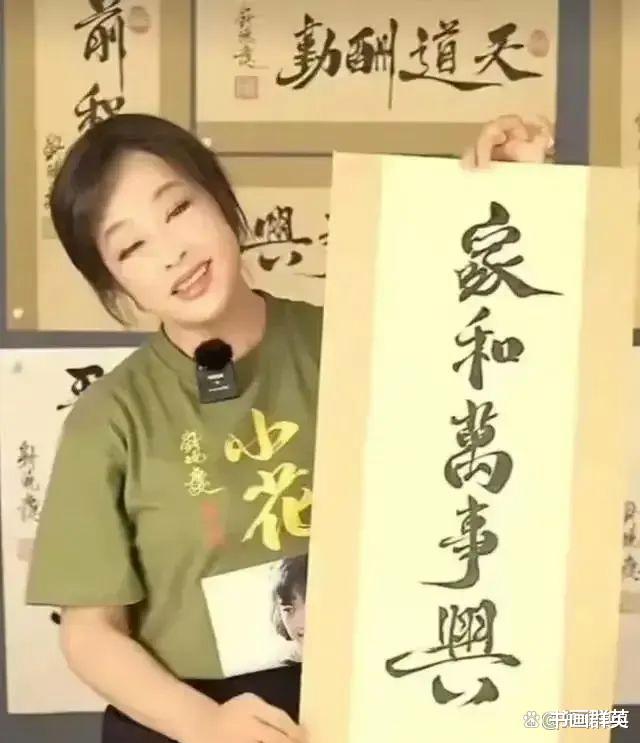 前和
天道酬勤
刘晓庆
興
家和萬事興
小花
刘晓庆
刘晓庆
@书画群英